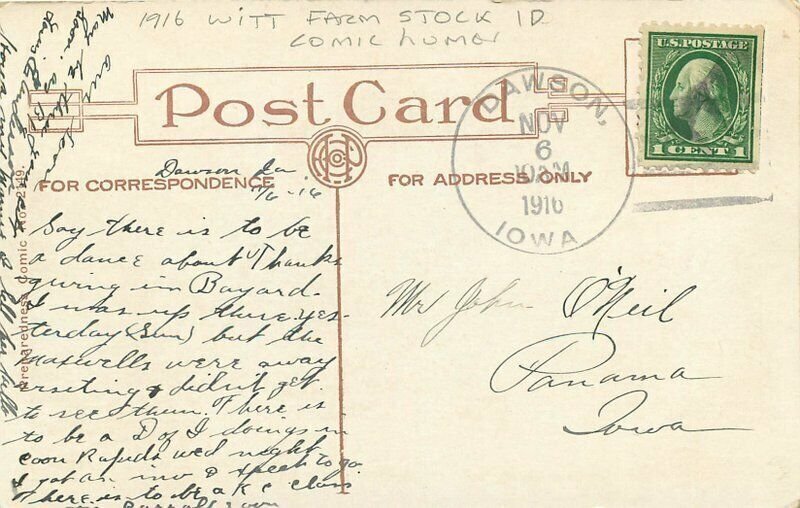 1916 WITT FARM STOCK ID
COMIC HUMOR
U.S. POSTAGE
1 CENT 1
Post Card
DAWSON,
NOV
6
10 AM
1916
IOWA
FOR CORRESPONDENCE
FOR ADDRESS ONLY
Dawson Ia
11/6-16
Say there is to be
a dance about Thanks
giving in Bayard.
I was up there yes-
terday (Sun) but the
Maxwells were away
visiting & didn't get
to see them. There is
to be a D of I doings in
coon Rapids wed night
I got an inv & expect to go
There is to be a K C class
Carroll soon
Mr John O'Neil
Panama
Iowa
Preparedness Comic No. 2149.